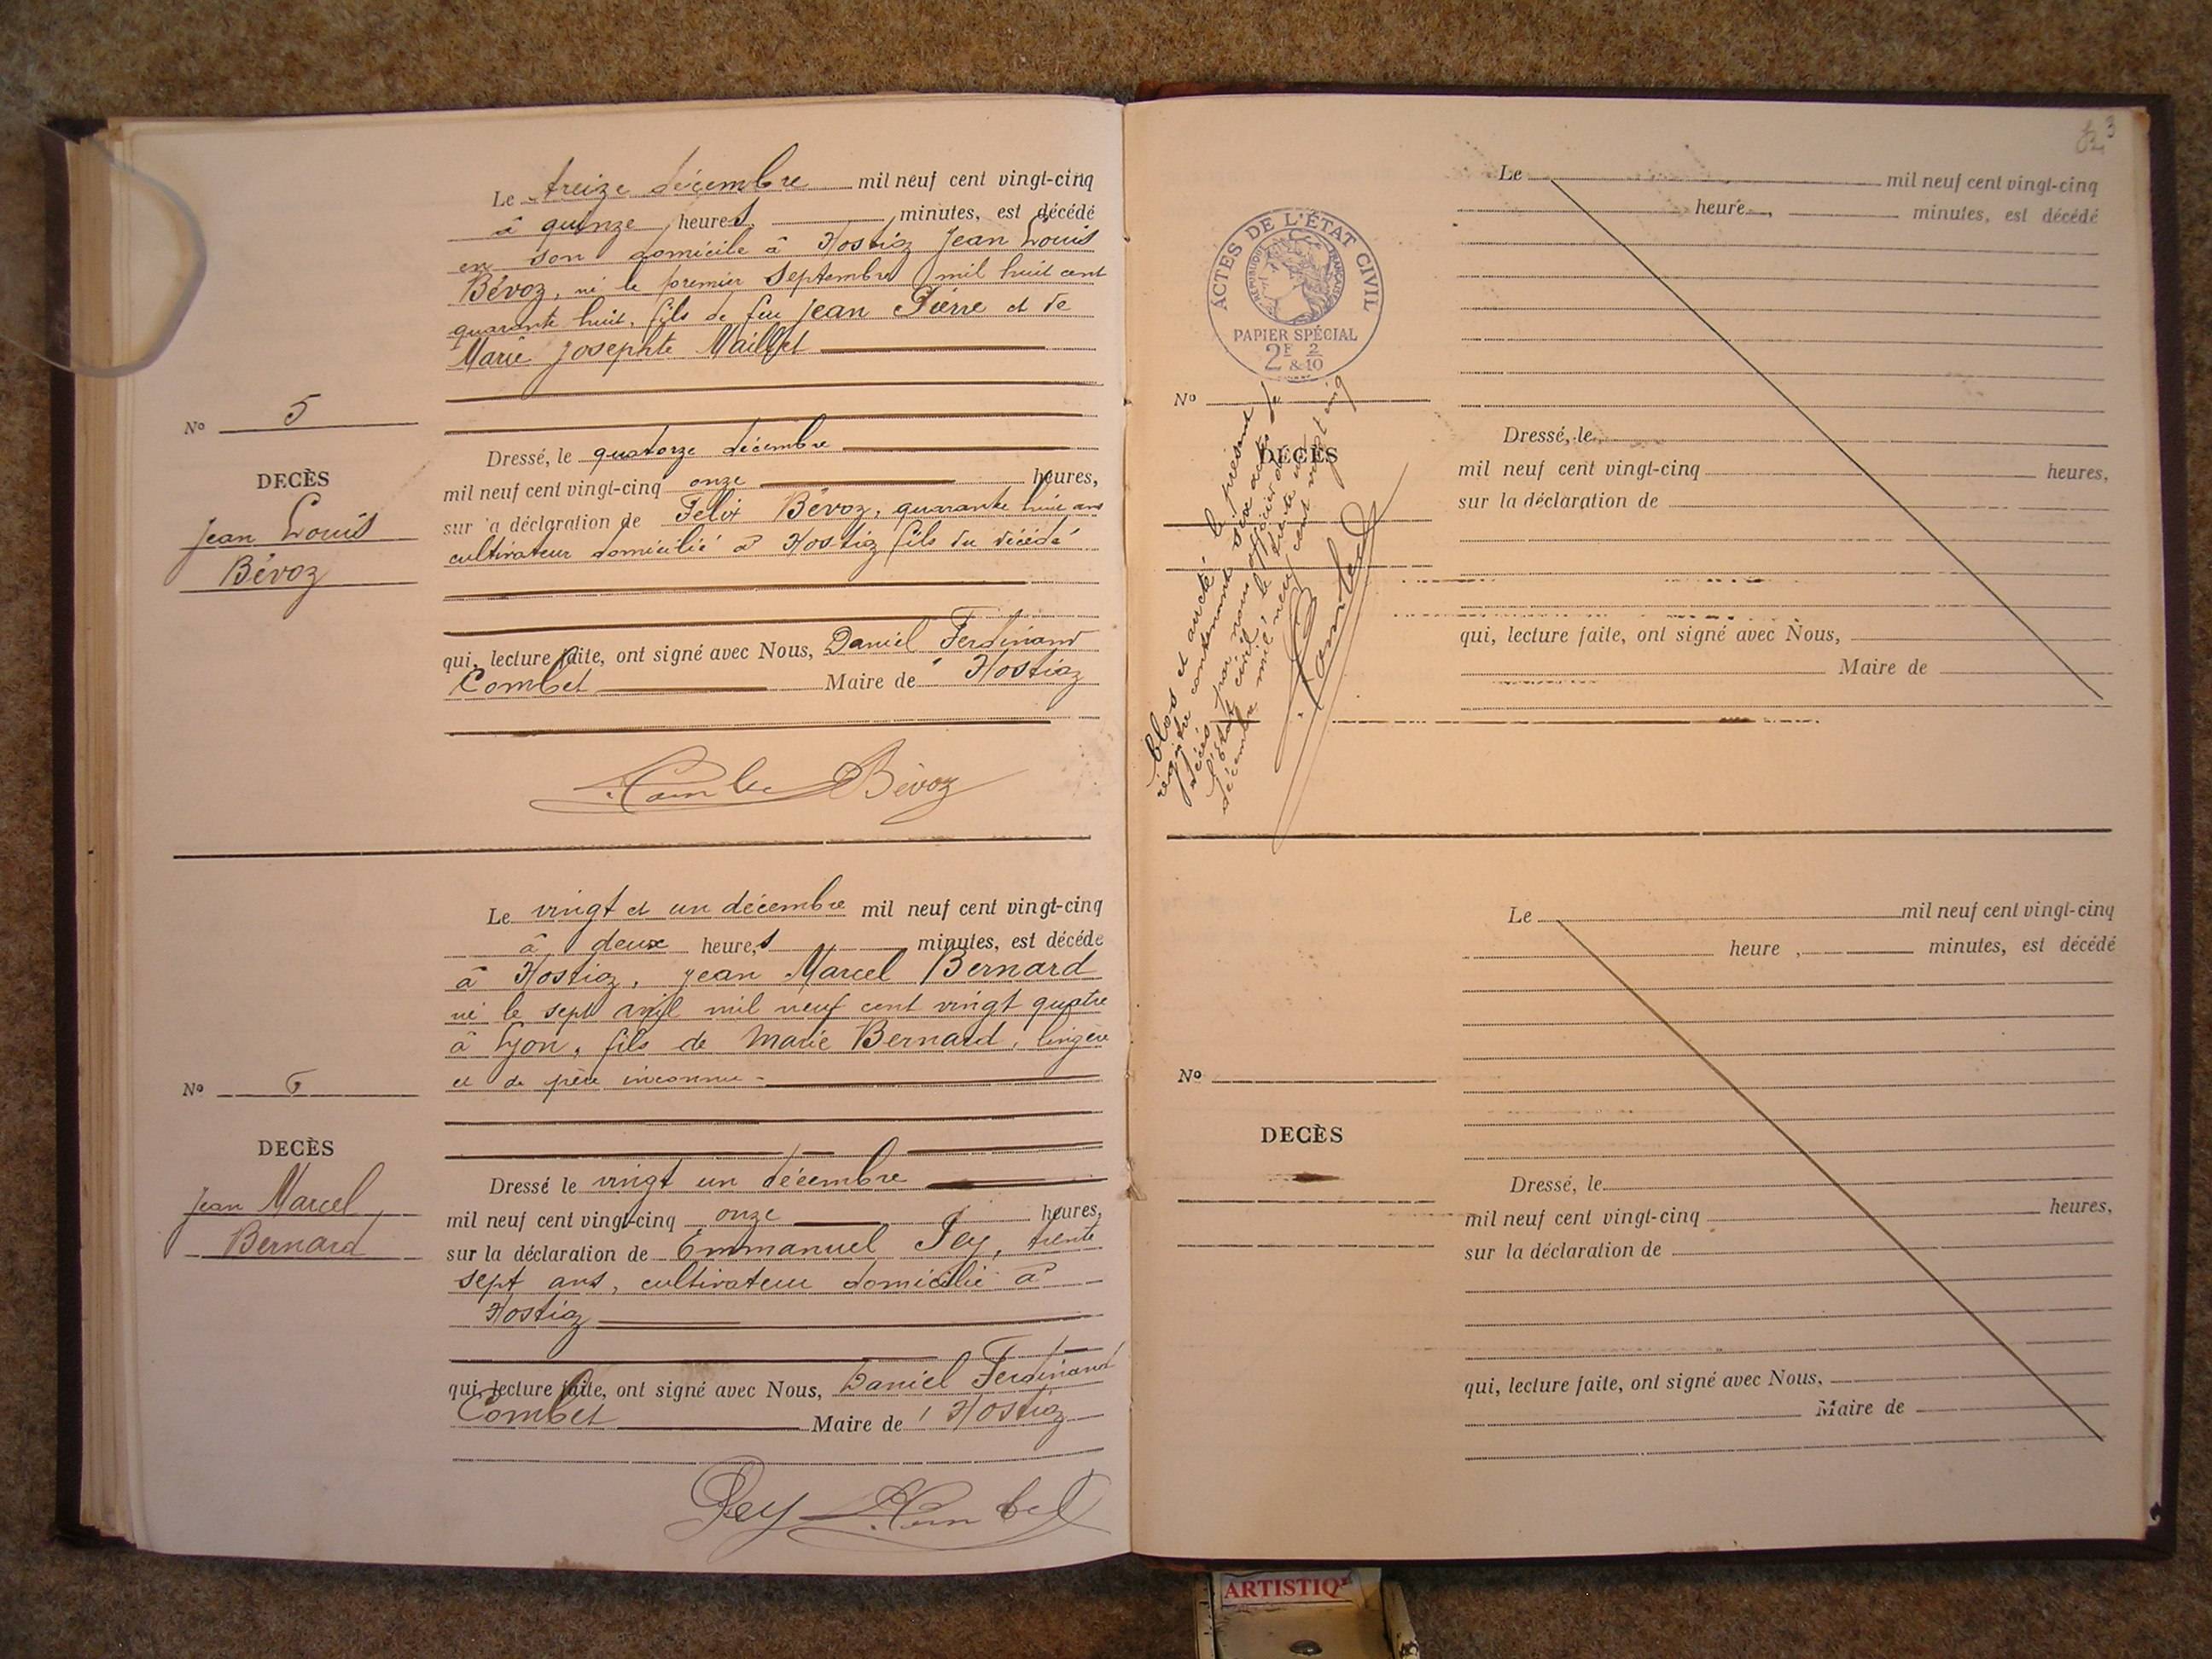 Le treize décembre mil neuf cent vingt-cinq
à quinze heures, minutes, est décédé
en son domicile à Hostiaz Jean Louis
Bévoz, né le premier Septembre mil huit cent
quarante huit, fils de feu Jean Pierre et de
Marie Josephte Maillet
No 5
DECÈS
Jean Louis
Bévoz
Dressé, le quatorze décembre
mil neuf cent vingt-cinq onze heures,
sur a déclaration de Felix Bévoz, quarante huit ans
cultivateur domicilié à Hostiaz fils du décédé
qui, lecture faite, ont signé avec Nous, Daniel Ferdinand
Combet Maire de Hostiaz
Combet Bévoz
Le vingt et un décembre mil neuf cent vingt-cinq
à deux heures, minutes, est décédé
à Hostiaz, Jean Marcel Bernard
né le sept avril mil neuf cent vingt quatre
à Lyon, fils de Marie Bernard, lingère
et de père inconnu
No 6
DECÈS
Jean Marcel
Bernard
Dressé le vingt un décembre
mil neuf cent vingt-cinq onze heures,
sur la déclaration de Emmanuel Pey, trente
sept ans, cultivateur domicilié à
Hostiaz
qui, lecture faite, ont signé avec Nous, Daniel Ferdinand
Combet Maire de Hostiaz
Pey Combet
3
Le mil neuf cent vingt-cinq
heure, minutes, est décédé
ACTES DE L'ÉTAT CIVIL
RÉPUBLIQUE FRANÇAISE
PAPIER SPÉCIAL
2F 2/10
&
No
DECÈS
Clos et arrêté le présent
registre contenant six actes de
décès par nous officier de
l'état civil le trente un
décembre mil neuf cent vingt cinq
Combet
Dressé, le
mil neuf cent vingt-cinq heures,
sur la déclaration de
qui, lecture faite, ont signé avec Nous,
Maire de
Le mil neuf cent vingt-cinq
heure, minutes, est décédé
No
DECÈS
Dressé, le
mil neuf cent vingt-cinq heures,
sur la déclaration de
qui, lecture faite, ont signé avec Nous,
Maire de
ARTISTIQ